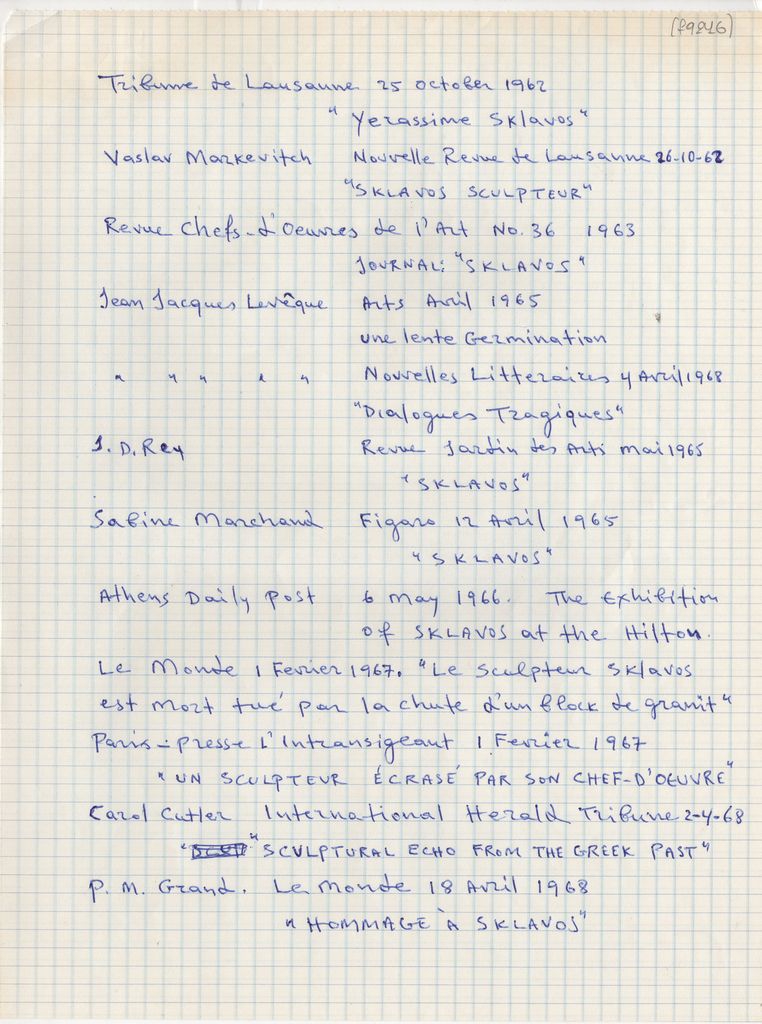 (f9246)
Tribune de Lausanne 25 October 1962
"Yerassime Sklavos"
Vaslav Markevitch Nouvelle Revue de Lausanne 26-10-62
"SKLAVOS SCULPTEUR"
Revue Chefs-d'Oeuvres de l'Art No. 36 1963
JOURNAL: "SKLAVOS"
Jean Jacques Levêque Arts Avril 1965
une lente Germination
" " " " " Nouvelles Litteraires 4 Avril 1968
"Dialogues Tragiques"
J. D. Rey Revue Jardin des Arts mai 1965
"SKLAVOS"
Sabine Marchand Figaro 12 Avril 1965
"SKLAVOS"
Athens Daily Post 6 May 1966. The Exhibition
of SKLAVOS at the Hilton.
Le Monde 1 Fevrier 1967. "Le Sculpteur Sklavos
est mort tué par la chute d'un block de granit"
Paris-presse L'Intransigeant 1 Fevrier 1967
"UN SCULPTEUR ÉCRASÉ PAR SON CHEF-D'OEUVRE"
Carol Cutler International Herald Tribune 2-4-68
"SCULPTURAL ECHO FROM THE GREEK PAST"
P. M. Grand. Le Monde 18 Avril 1968
"HOMMAGE À SKLAVOS"